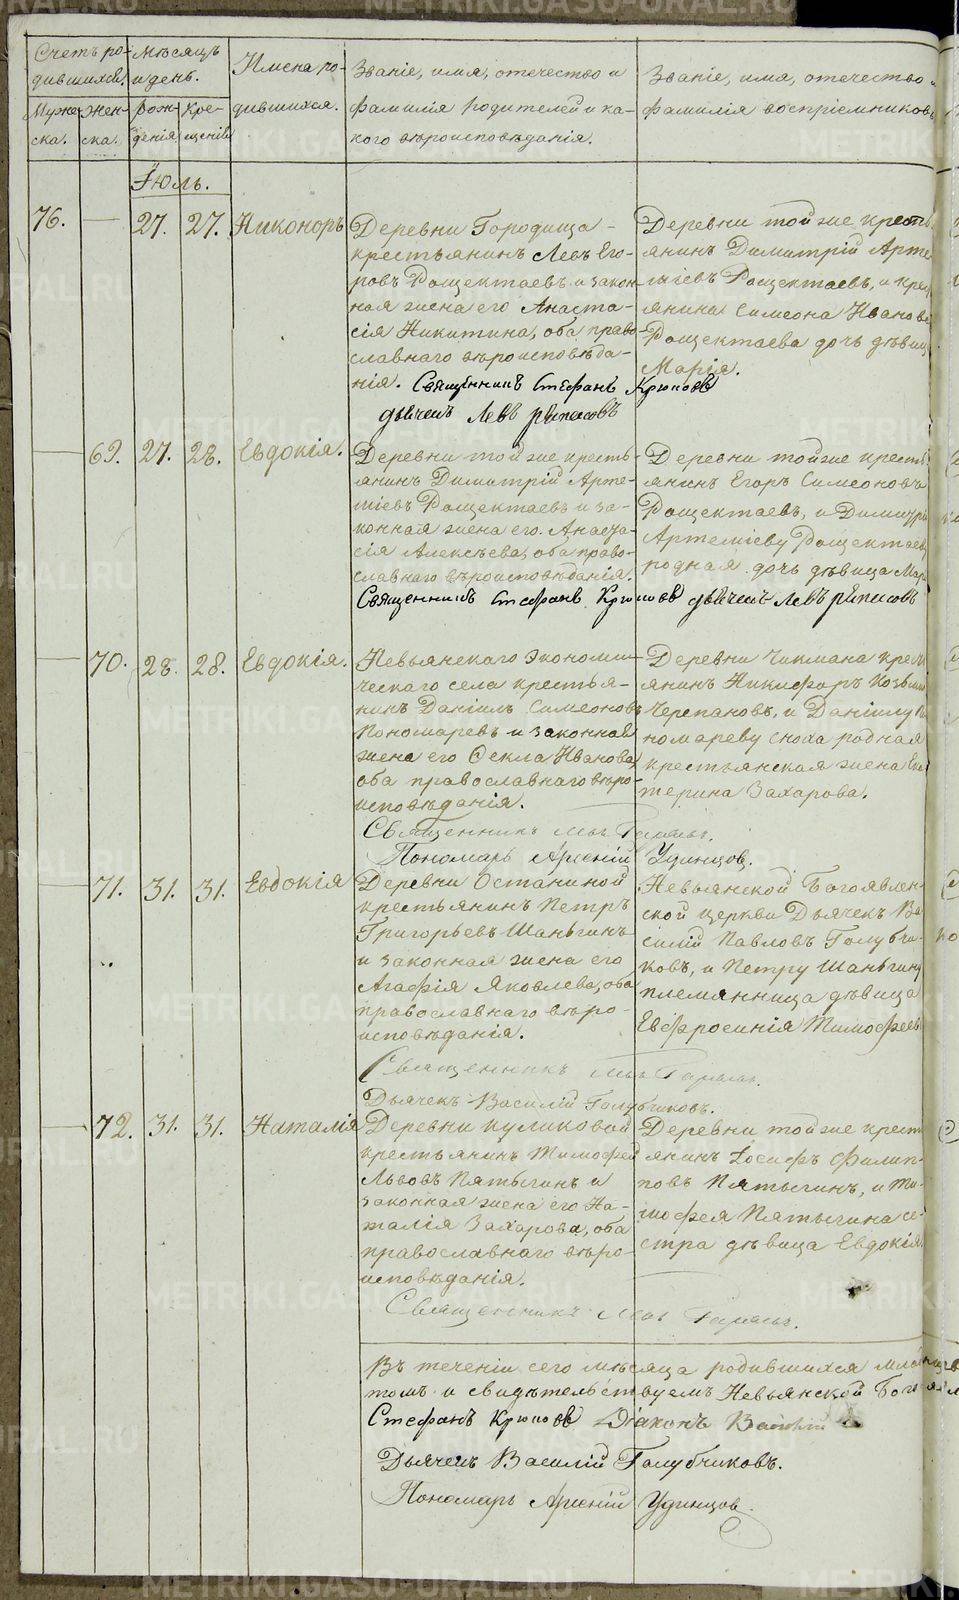 Счетъ ро-
дившихся.
Мѣсяцъ
и день.
Имена ро-
дившихся.
Званіе, имя, отечество и
фамилія родителей и ка-
кого вѣроисповѣданія.
Званіе, имя, отечество и
фамилія воспріемниковъ
Муже-
ска.
Жен-
ска.
Рож-
денія
Кре-
щенія
Іюль.
76. — 27. 27. Никоноръ
Деревни Городища
крестьянинъ Левъ Его-
ровъ Рощектаевъ и закон-
ная жена его Анаста-
сія Никитина, оба право-
славнаго вѣроисповѣда-
нія. Священникъ Стефанъ Крюковъ
дьячекъ Левъ
Деревни той же кресть
янинъ Димитрій Арте
міевъ Рощектаевъ, и крес
янина Симеона Иванова
Рощектаева дочь дѣвица
Марія.
— 69. 27. 28. Евдокія.
Деревни той же кресть-
янинъ Димитрій Арте-
міевъ Рощектаевъ и за-
конная жена его Анаста-
сія Алексѣева, оба право-
славнаго вѣроисповѣданія.
Священникъ Стефанъ Крюковъ дьячекъ Левъ
Деревни той же кресть
янинъ Егоръ Симеоновъ
Рощектаевъ, и Димитрія
Артеміеву Рощектаеву
родная дочь дѣвица Мар
— 70. 28. 28. Евдокія.
Невьянскаго Экономи-
ческаго села крестья-
нинъ Даніилъ Симеоновъ
Пономаревъ и законная
жена его Ѳекла Иванова,
оба православнаго вѣро-
исповѣданія.
Священникъ
Пономарь Арсеній Удинцов.
Деревни Чикмана крест
янинъ Никифоръ Козьмин
Черепановъ, и Даніилу По
номареву сноха родная
крестьянская жена Ека
терина Захарова.
— 71. 31. 31. Евдокія
Деревни Останиной
крестьянинъ Петръ
Григорьевъ Шаньгинъ
и законная жена его
Агафія Яковлева, оба
православнаго вѣро-
исповѣданія.
Священникъ
Дьячекъ Василій Голубчиковъ.
Невьянской Богоявлен-
ской церкви Дьячекъ Ва
силій Павловъ Голубчи-
ковъ, и Петру Шаньгину
племянница дѣвица
Евфросинія Тимофеев
— 72. 31. 31. Наталія
Деревни Куликовой
крестьянинъ Тимофей
Львовъ Пятыгинъ и
законная жена его На-
талія Захарова, оба
православнаго вѣро-
исповѣданія.
Священникъ
Деревни той же крест
янинъ Іосифъ Филип-
повъ Пятыгинъ, и Ти-
мофея Пятыгина се-
стра дѣвица Евдокія.
Въ теченіи сего мѣсяца родившихся
томъ и свидѣтельствуемъ Невьянской Бого
Стефанъ Крюковъ Діаконъ Василій
Дьячекъ Василій Голубчиковъ.
Пономарь Арсеній Удинцов.
METRIKI.GASO-URAL.RU